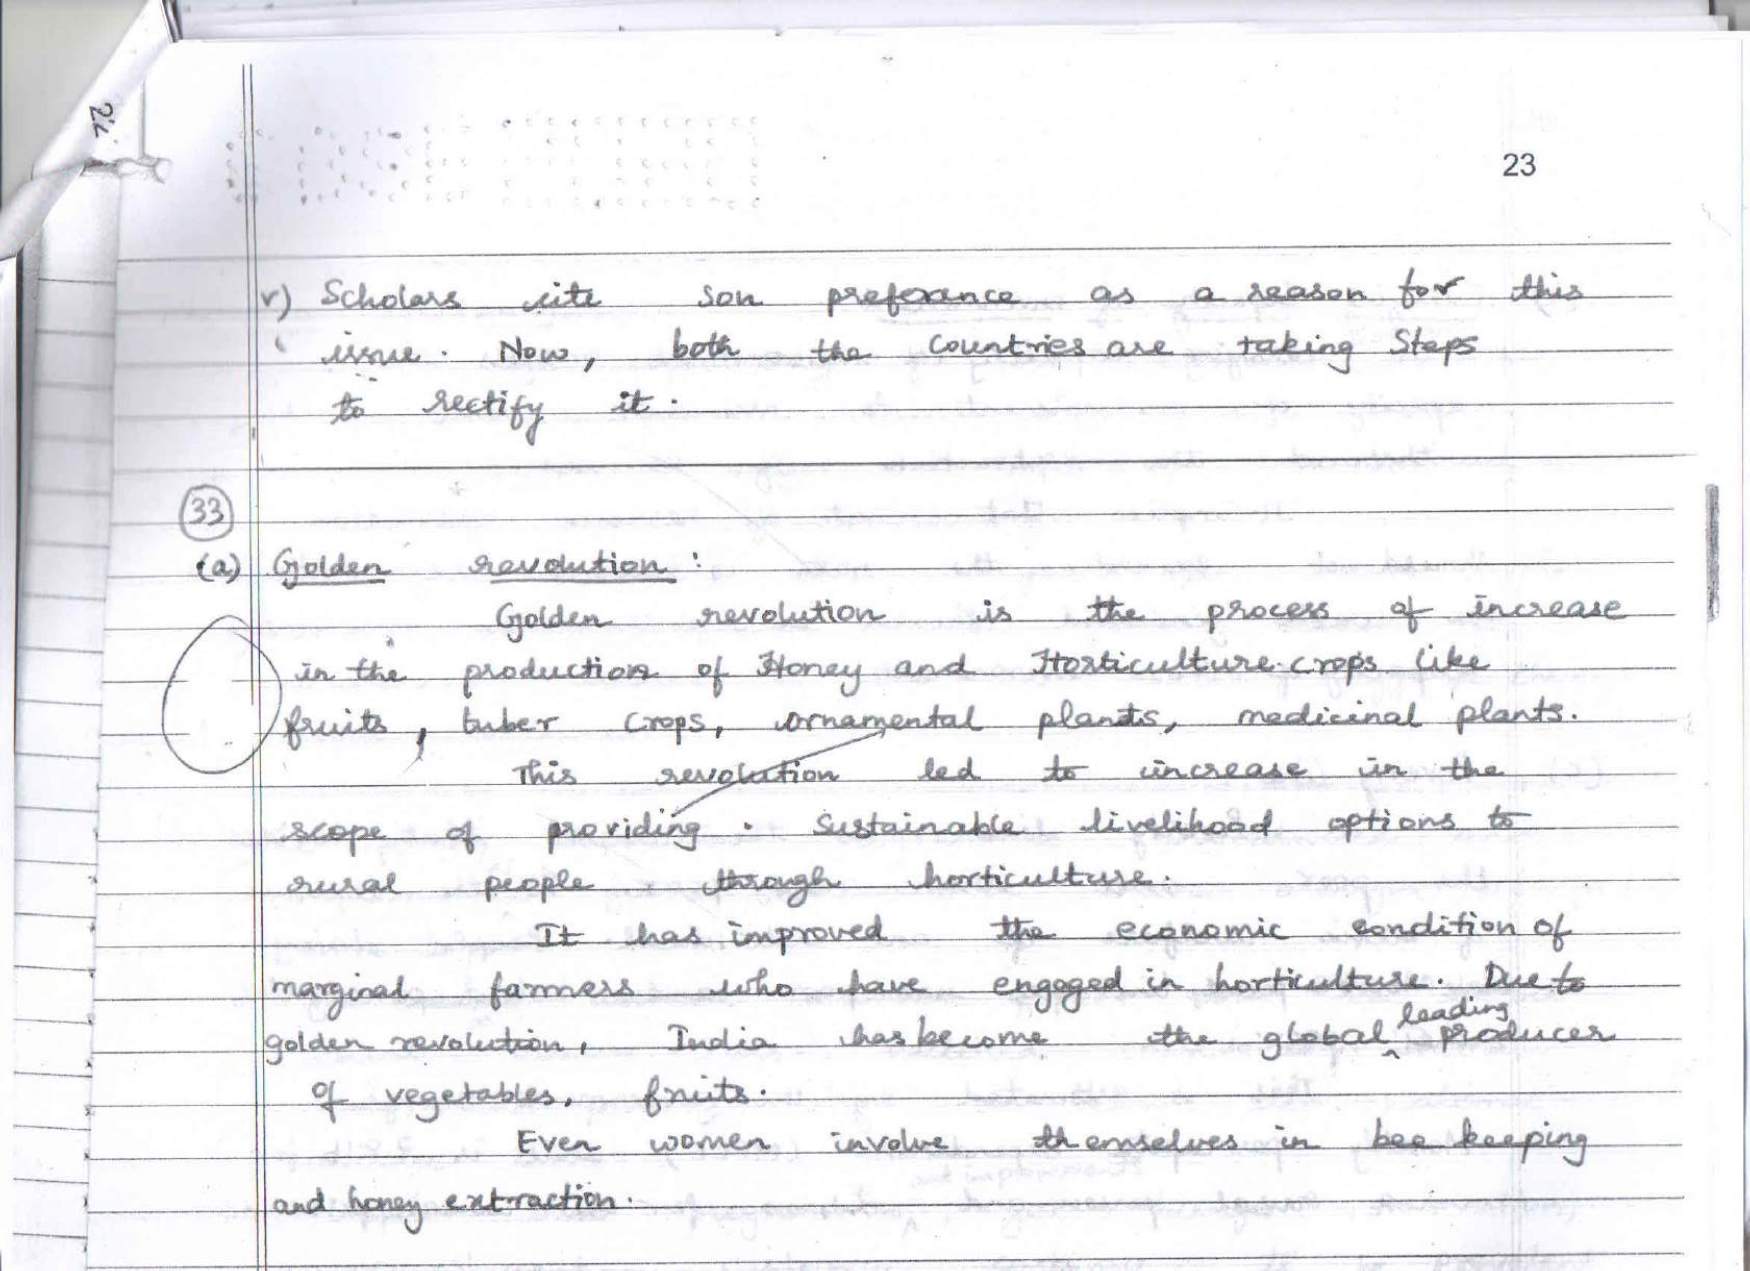 22
23
v) Scholars cite son preferance as a reason for this
issue. Now, both the countries are taking Steps
to rectify it.
33
(a) Golden revolution :
Golden revolution is the process of increase
in the production of Honey and Horticulture crops like
fruits, tuber crops, ornamental plants, medicinal plants.
This revolution led to increase in the
scope of providing. Sustainable livelihood options to
rural people through horticulture.
It has improved the economic condition of
marginal farmers who have engaged in horticulture. Due to
golden revolution, India has become the global leading producer
of vegetables, fruits.
Even women involve themselves in bee keeping
and honey extraction.